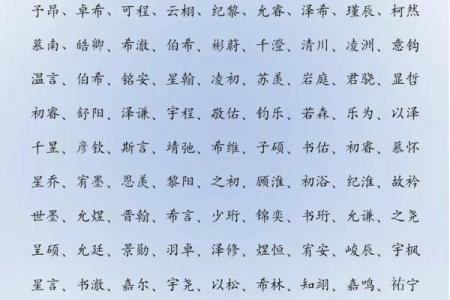 予昂、卓希、可程、云栩、纪黎、允睿、泽希、瑾辰、柯然
慕南、皓卿、希澈、伯希、彬蔚、千澄、清川、凌洲、意钧
温言、伯希、铭安、星翰、凌初、苏羡、岩庭、君骁、显哲
初睿、舒阳、泽谦、宇程、敬佑、钧乐、若森、乐为、以泽
千昱、彦钦、斯言、靖弛、希维、子硕、书佑、初睿、慕怀
星乔、宥墨、恩羡、黎阳、之初、顾淮、初浴、纪淮、故衿
世墨、允煜、晋翰、希言、少珩、锦奕、书珩、允谦、之尧
呈硕、允廷、景勋、羽卓、泽修、煜恒、宥安、峻辰、宇枫
星言、书澈、嘉尔、宇尧、以松、希林、知翊、嘉鸣、祐宁